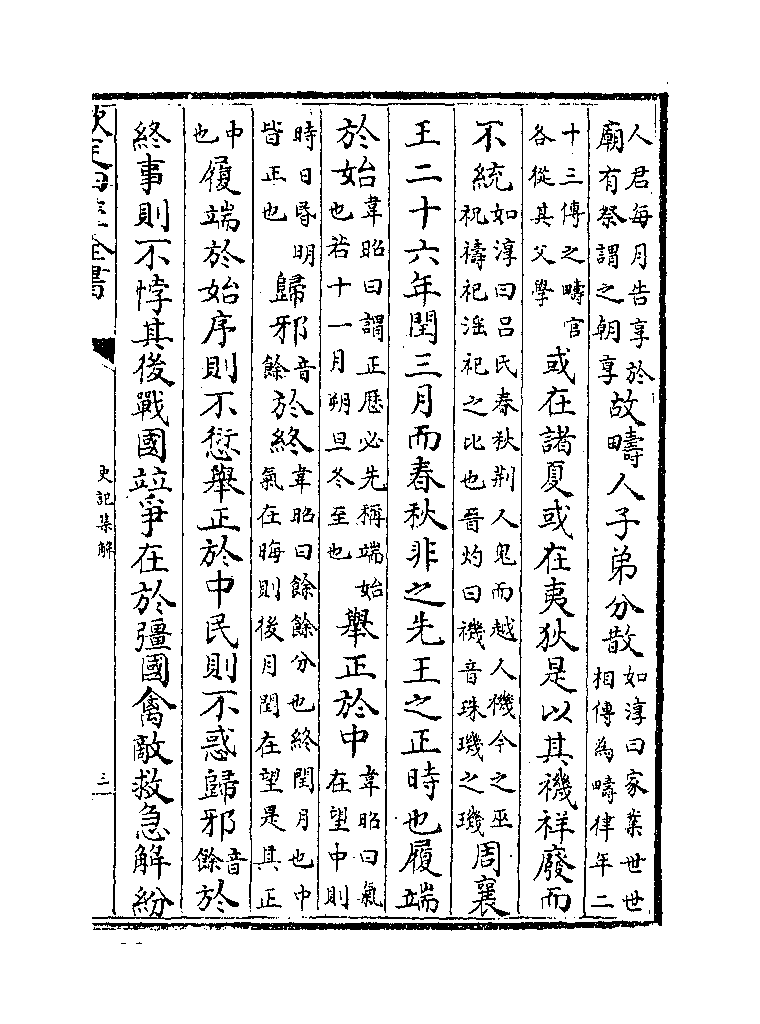 人君每月告享於
廟有祭謂之朝享
故疇人子弟分散
如淳曰家業世世
相傳為疇律年二
十三傳之疇官
各從其父學
或在諸夏或在夷狄是以其禨祥廢而
不統
如淳曰吕氏春秋荆人鬼而越人禨今之巫
祝禱祀淫祀之比也晉灼曰禨音珠璣之璣
周襄
王二十六年閏三月而春秋非之先王之正時也履端
於始
韋昭曰謂正厯必先稱端始
也若十一月朔旦冬至也
舉正於中
韋昭曰氣
在望中則
時日昏明
皆正也
歸邪
音
餘
於終
韋昭曰餘餘分也終閏月也中
氣在晦則後月閏在望是其正
中
也
履端於始序則不愆舉正於中民則不惑歸邪
音
餘
於
終事則不悖其後戰國竝爭在於彊國禽敵救急解紛
欽定四庫全書
史記集解
三